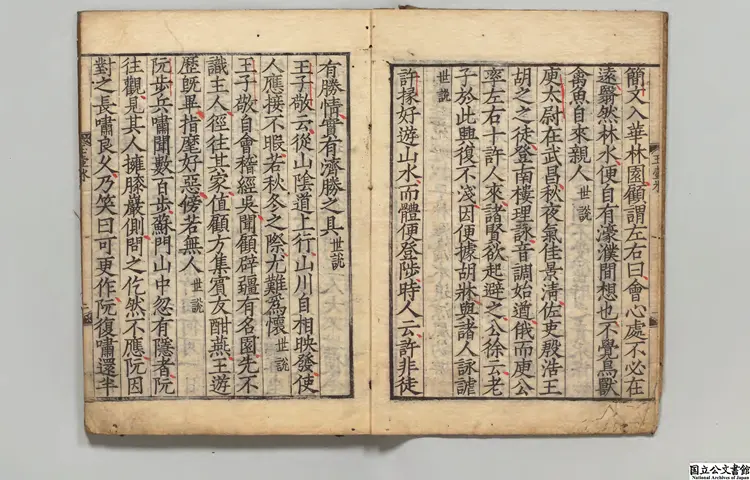 簡文入華林園顧謂左右曰會心處不必在
遠翳然林水便自有濠濮間想也不覺鳥獸
禽魚自來親人 世說
庾太尉在武昌秋夜氣佳景清佐吏殷浩王
胡之之徒登南樓理詠音調始遒俄而庾公
率左右十許人來諸賢欲起避之公徐云老
子於此興復不淺因便據胡牀與諸人詠謔
世說
許掾好遊山水而體便登陟時人云許非徒
有勝情實有濟勝之具 世說
王子敬云從山陰道上行山川自相映發使
人應接不暇若秋冬之際尤難爲懷 世說
王子敬自會稽經吳聞顧辟疆有名園先不
識主人徑往其家值顧方集賓友酣燕王遊
歷旣畢指麾好惡傍若無人 世說
阮步兵嘯聞數百步蘇門山中忽有隱者阮
往觀見其人擁膝巖側問之仡然不應阮因
對之長嘯良久乃笑曰可更作阮復嘯還半
国立公文書館
National Archives of Japan